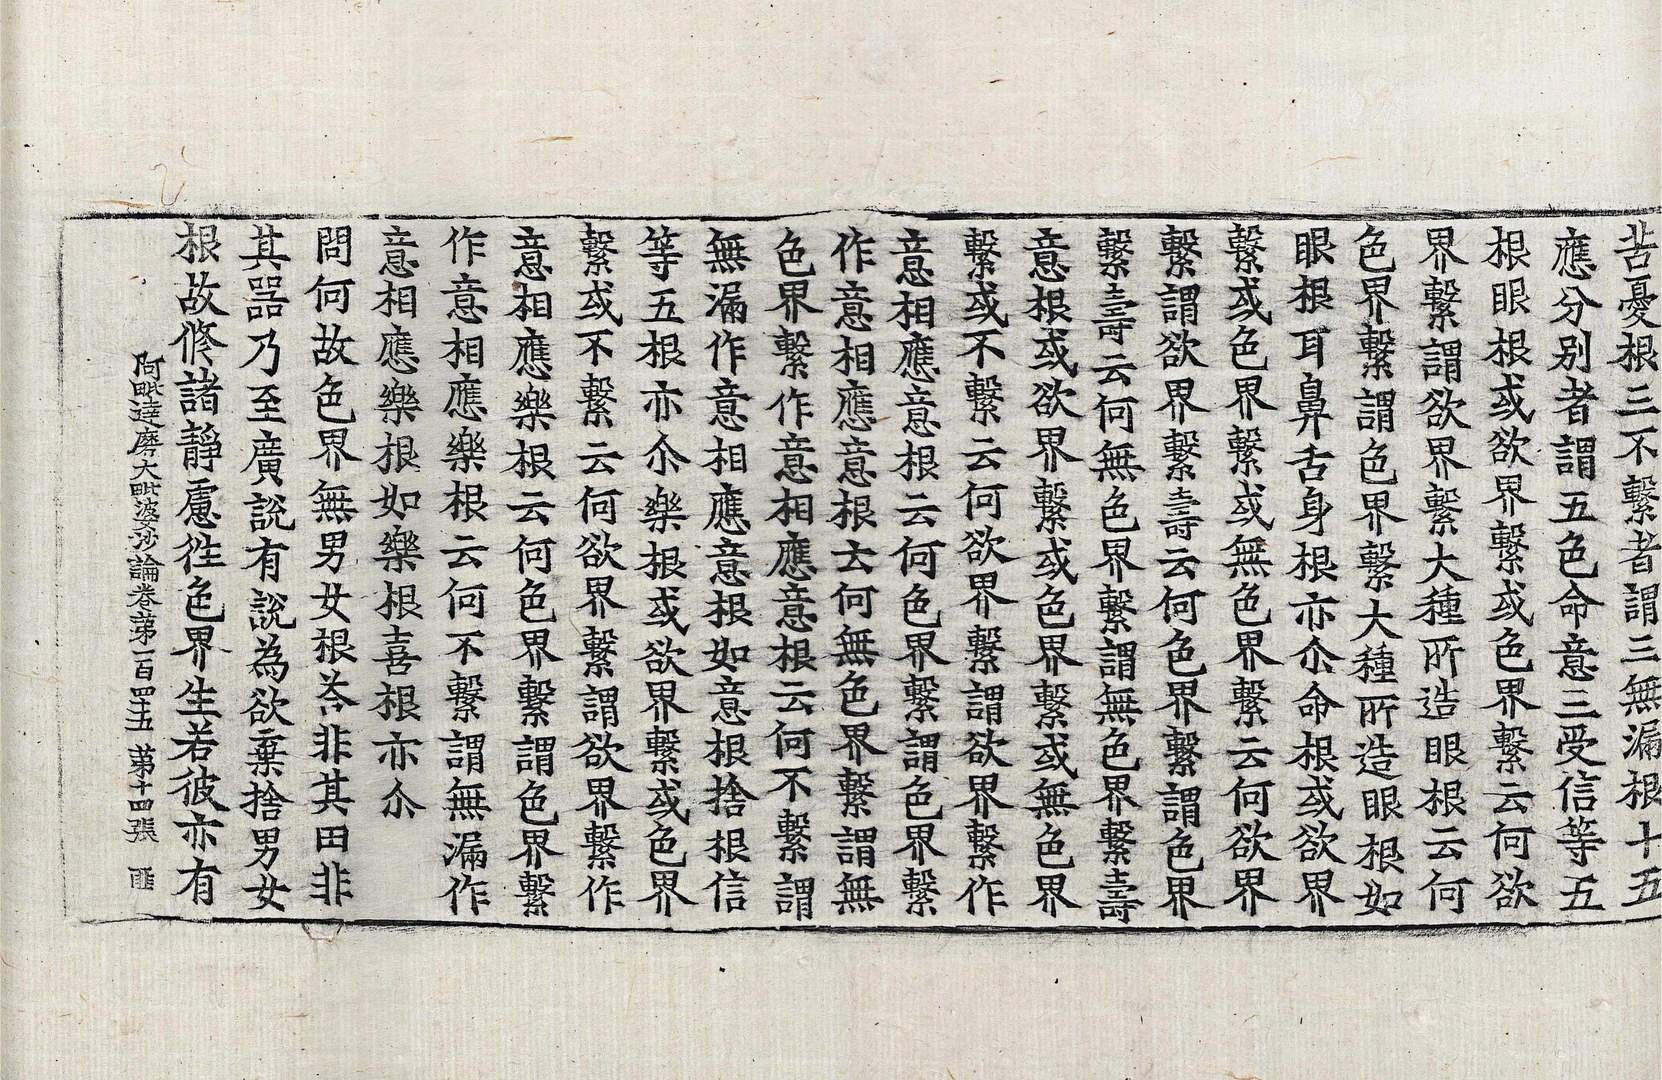 苦憂根三不繫者謂三無漏根十五
應分別者謂五色命意三受信等五
根眼根或欲界繫或色界繫云何欲
界繫謂欲界繫大種所造眼根云何
色界繫謂色界繫大種所造眼根如
眼根耳鼻舌身根亦尒命根或欲界
繫或色界繫或無色界繫云何欲界
繫謂欲界繫壽云何色界繫謂色界
繫壽云何無色界繫謂無色界繫壽
意根或欲界繫或色界繫或無色界
繫或不繫云何欲界繫謂欲界繫作
意相應意根云何色界繫謂色界繫
作意相應意根云何無色界繫謂無
色界繫作意相應意根云何不繫謂
無漏作意相應意根如意根捨根信
等五根亦尒樂根或欲界繫或色界
繫或不繫云何欲界繫謂欲界繫作
意相應樂根云何色界繫謂色界繫
作意相應樂根云何不繫謂無漏作
意相應樂根如樂根喜根亦尒
問何故色界無男女根荅非其田非
其器乃至廣說有說為欲棄捨男女
根故修諸靜慮徃色界生若彼亦有
阿毗達磨大毗婆沙論卷第一百四十五 第十四張 匪